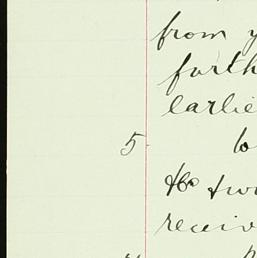 from y
furth
earlie
5. to
two
receiv